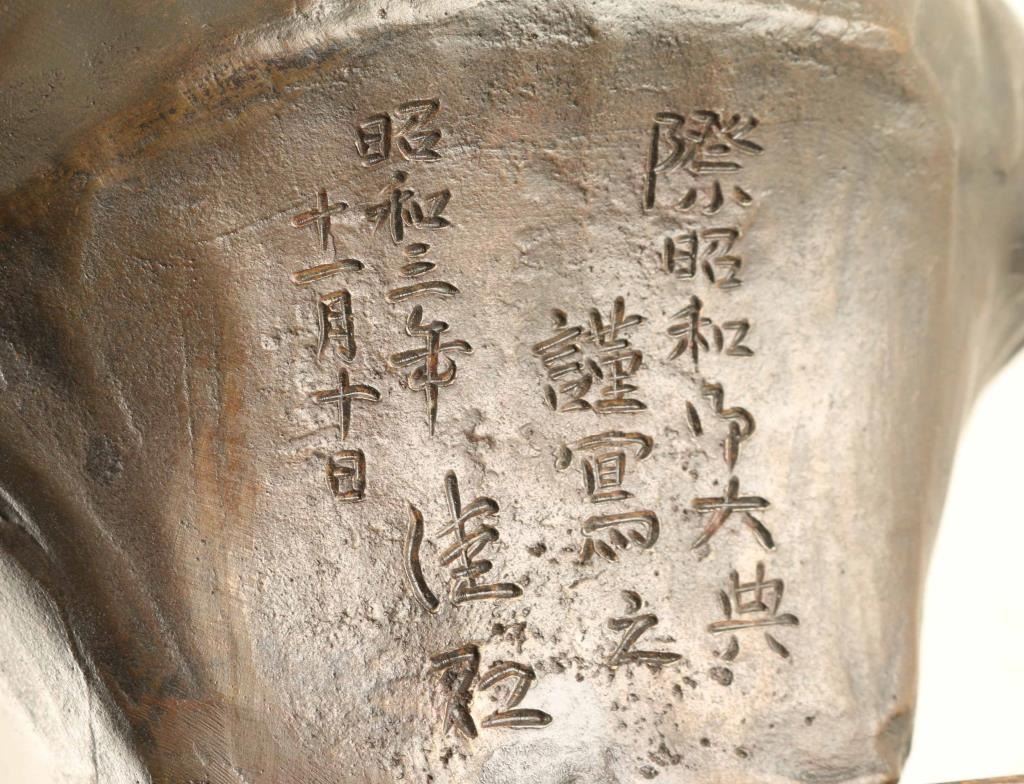 際昭和御大典
謹寫之
昭和三年
十一月十日